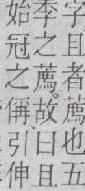 字且者薦也
李之薦故曰且五
始冠之稱引伸